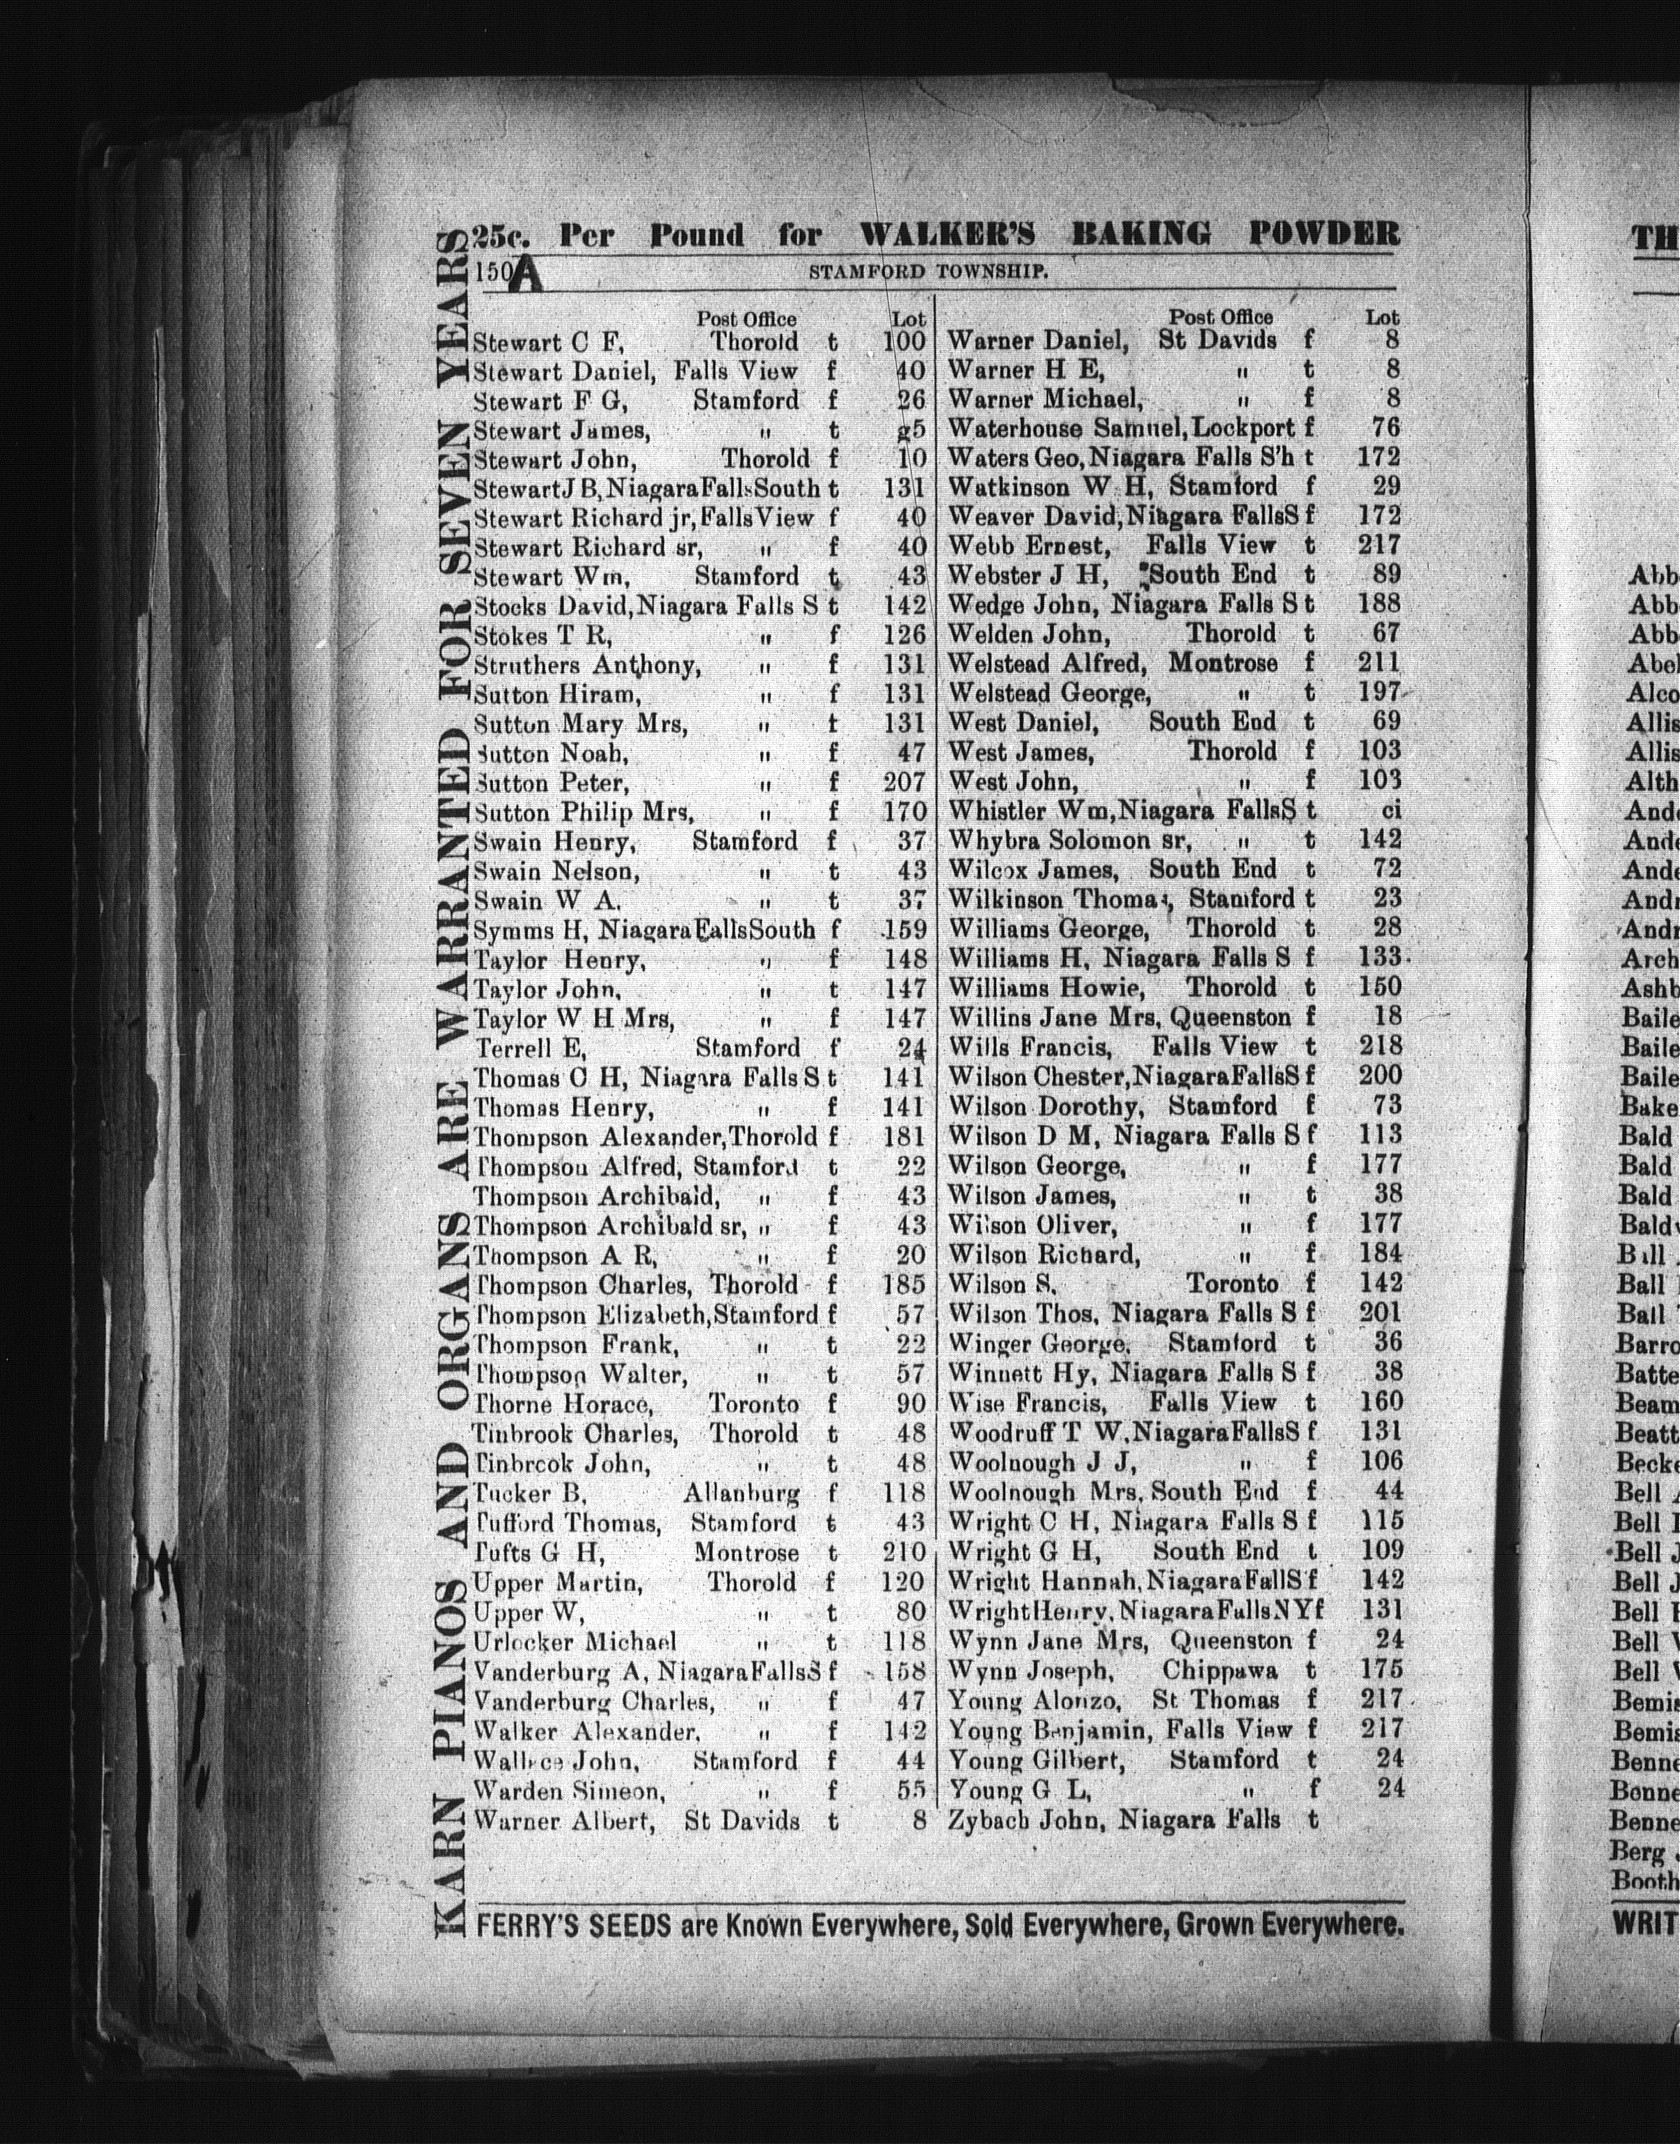 25c. Per Pound for WALKER'S BAKING POWDER
150A STAMFORD TOWNSHIP.
KARN PIANOS AND ORGANS ARE WARRANTED FOR SEVEN YEARS
Post Office Lot
Stewart C F, Thorold t 100
Stewart Daniel, Falls View f 40
Stewart F G, Stamford f 26
Stewart James, " t g5
Stewart John, Thorold f 10
Stewart J B, Niagara Falls South t 131
Stewart Richard jr, Falls View f 40
Stewart Richard sr, " f 40
Stewart Wm, Stamford t 43
Stocks David, Niagara Falls S t 142
Stokes T R, " f 126
Struthers Anthony, " f 131
Sutton Hiram, " f 131
Sutton Mary Mrs, " t 131
Sutton Noah, " f 47
Sutton Peter, " f 207
Sutton Philip Mrs, " f 170
Swain Henry, Stamford f 37
Swain Nelson, " t 43
Swain W A. " t 37
Symms H, Niagara Falls South f 159
Taylor Henry, " f 148
Taylor John, " t 147
Taylor W H Mrs, " f 147
Terrell E, Stamford f 24
Thomas C H, Niagara Falls S t 141
Thomas Henry, " f 141
Thompson Alexander, Thorold f 181
Thompson Alfred, Stamford t 22
Thompson Archibald, " f 43
Thompson Archibald sr, " f 43
Thompson A R, " f 20
Thompson Charles, Thorold f 185
Thompson Elizabeth, Stamford f 57
Thompson Frank, " t 22
Thompson Walter, " t 57
Thorne Horace, Toronto f 90
Tinbrook Charles, Thorold t 48
Tinbrook John, " t 48
Tucker B, Allanburg f 118
Tufford Thomas, Stamford t 43
Tufts G H, Montrose t 210
Upper Martin, Thorold f 120
Upper W, " t 80
Urlocker Michael " t 118
Vanderburg A, Niagara Falls S f 158
Vanderburg Charles, " f 47
Walker Alexander, " f 142
Wallace John, Stamford f 44
Warden Simeon, " f 55
Warner Albert, St Davids t 8
Post Office Lot
Warner Daniel, St Davids f 8
Warner H E, " t 8
Warner Michael, " f 8
Waterhouse Samuel, Lockport f 76
Waters Geo, Niagara Falls S'h t 172
Watkinson W H, Stamford f 29
Weaver David, Niagara Falls S f 172
Webb Ernest, Falls View t 217
Webster J H, South End t 89
Wedge John, Niagara Falls S t 188
Welden John, Thorold t 67
Welstead Alfred, Montrose f 211
Welstead George, " t 197
West Daniel, South End t 69
West James, Thorold f 103
West John, " f 103
Whistler Wm, Niagara Falls S t ci
Whybra Solomon sr, " t 142
Wilcox James, South End t 72
Wilkinson Thomas, Stamford t 23
Williams George, Thorold t 28
Williams H, Niagara Falls S f 133
Williams Howie, Thorold t 150
Willins Jane Mrs, Queenston f 18
Wills Francis, Falls View t 218
Wilson Chester, Niagara Falls S f 200
Wilson Dorothy, Stamford f 73
Wilson D M, Niagara Falls S f 113
Wilson George, " f 177
Wilson James, " t 38
Wilson Oliver, " f 177
Wilson Richard, " f 184
Wilson S. Toronto f 142
Wilson Thos, Niagara Falls S f 201
Winger George, Stamford t 36
Winnett Hy, Niagara Falls S f 38
Wise Francis, Falls View t 160
Woodruff T W, Niagara Falls S f 131
Woolnough J J, " f 106
Woolnough Mrs, South End f 44
Wright C H, Niagara Falls S f 115
Wright G H, South End t 109
Wright Hannah, Niagara Fall S f 142
Wright Henry, Niagara Falls N Y f 131
Wynn Jane Mrs, Queenston f 24
Wynn Joseph, Chippawa t 175
Young Alonzo, St Thomas f 217
Young Benjamin, Falls View f 217
Young Gilbert, Stamford t 24
Young G L, " f 24
Zybach John, Niagara Falls t
FERRY'S SEEDS are Known Everywhere, Sold Everywhere, Grown Everywhere.
TH
Abb
Abb
Abb
Abel
Alco
Allis
Allis
Alth
Ande
Ande
Ande
Andr
Andr
Arch
Ashb
Baile
Baile
Baile
Bake
Bald
Bald
Bald
Baldw
Ball
Ball
Ball
Barro
Batte
Beam
Beatt
Becke
Bell
Bell
Bell J
Bell J
Bell
Bell
Bell
Bemis
Bemis
Benne
Benne
Benne
Berg
Booth
WRIT